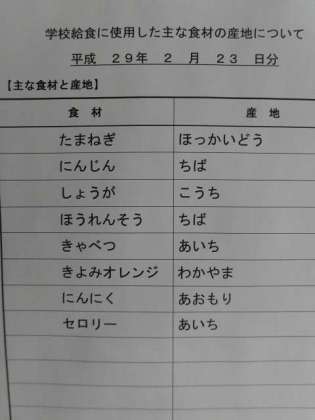 学校給食に使用した主な食材の産地について
平成 29年 2 月 23 日分
【主な食材と産地】
食 材 産 地
たまねぎ ほっかいどう
にんじん ちば
しょうが こうち
ほうれんそう ちば
きゃべつ あいち
きよみオレンジ わかやま
にんにく あおもり
セロリー あいち